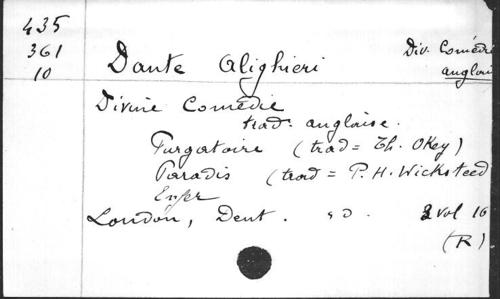 435
361
10
Dante Alighieri
Div. Comédie
anglais
Divine Comédie
trad. anglaise.
Purgatoire (trad = Th. Okey)
Paradis (trad = P. H. Wicksteed
Enfer
London, Dent. s.d. 3 vol 16
(R)